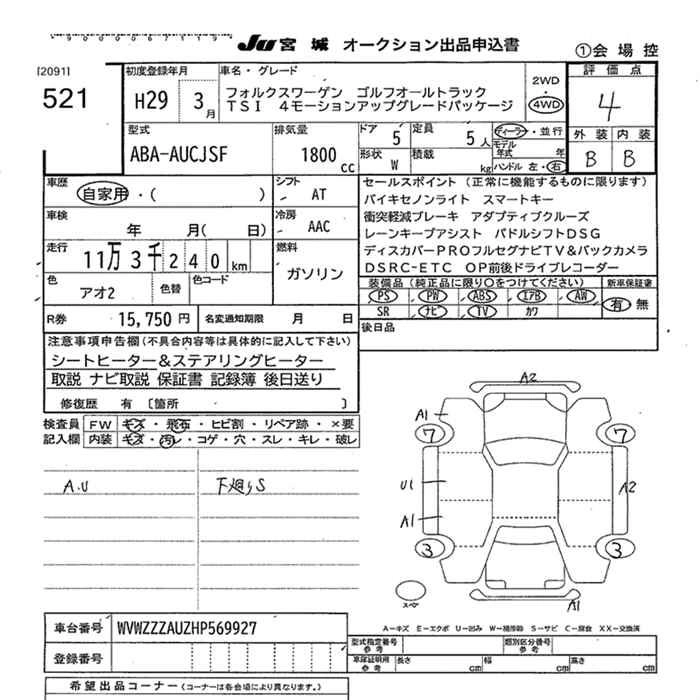 JU 宮城 オークション出品申込書
①会場控
[2091]
521
初度登録年月
H29 3月
車名・グレード
フォルクスワーゲン ゴルフオールトラック
TSI 4モーションアップグレードパッケージ
2WD
・
4WD
評価点
4
外装 内装
B B
型式
ABA-AUCJSF
排気量
1800cc
ドア 5
定員 5人
形状 W
積載 kg
ディーラー・並行
モデル年式 年
ハンドル 左・右
車歴 自家用・( )
シフト AT
車検 年 月( 日)
冷房 AAC
走行 11万3千240km
燃料 ガソリン
色 アオ2 色替 色コード
R券 15,750円 名変通知期限 月 日
セールスポイント (正常に機能するものに限ります)
バイキセノンライト スマートキー
衝突軽減ブレーキ アダプティブクルーズ
レーンキープアシスト パドルシフトDSG
ディスカバーPROフルセグナビTV&バックカメラ
DSRC-ETC OP前後ドライブレコーダー
装備品(純正品に限り○をつけてください) 新車保証書
PS PW ABS エアB AW 有 無
SR ナビ TV カワ
後日品
注意事項申告欄(不具合内容等は具体的に記入して下さい)
シートヒーター&ステアリングヒーター
取説 ナビ取説 保証書 記録簿 後日送り
修復歴 有 〔箇所 〕
検査員記入欄
FW キズ・飛石・ヒビ割・リペア跡・×要
内装 キズ・汚レ・コゲ・穴・スレ・キレ・破レ
A.U 下廻りS
A2
A1
7 7
U1 A2
A1
3 3
スペア A1
A-キズ E-エクボ U-凹み W-補修跡 S-サビ C-腐食 XX-交換済
車台番号 WVWZZZAUZHP569927
登録番号
型式指定番号 参考 類別区分番号 参考
車庫証明用 参考 長さ cm 幅 cm 高さ cm
希望出品コーナー(コーナーは各会場により異なります。)